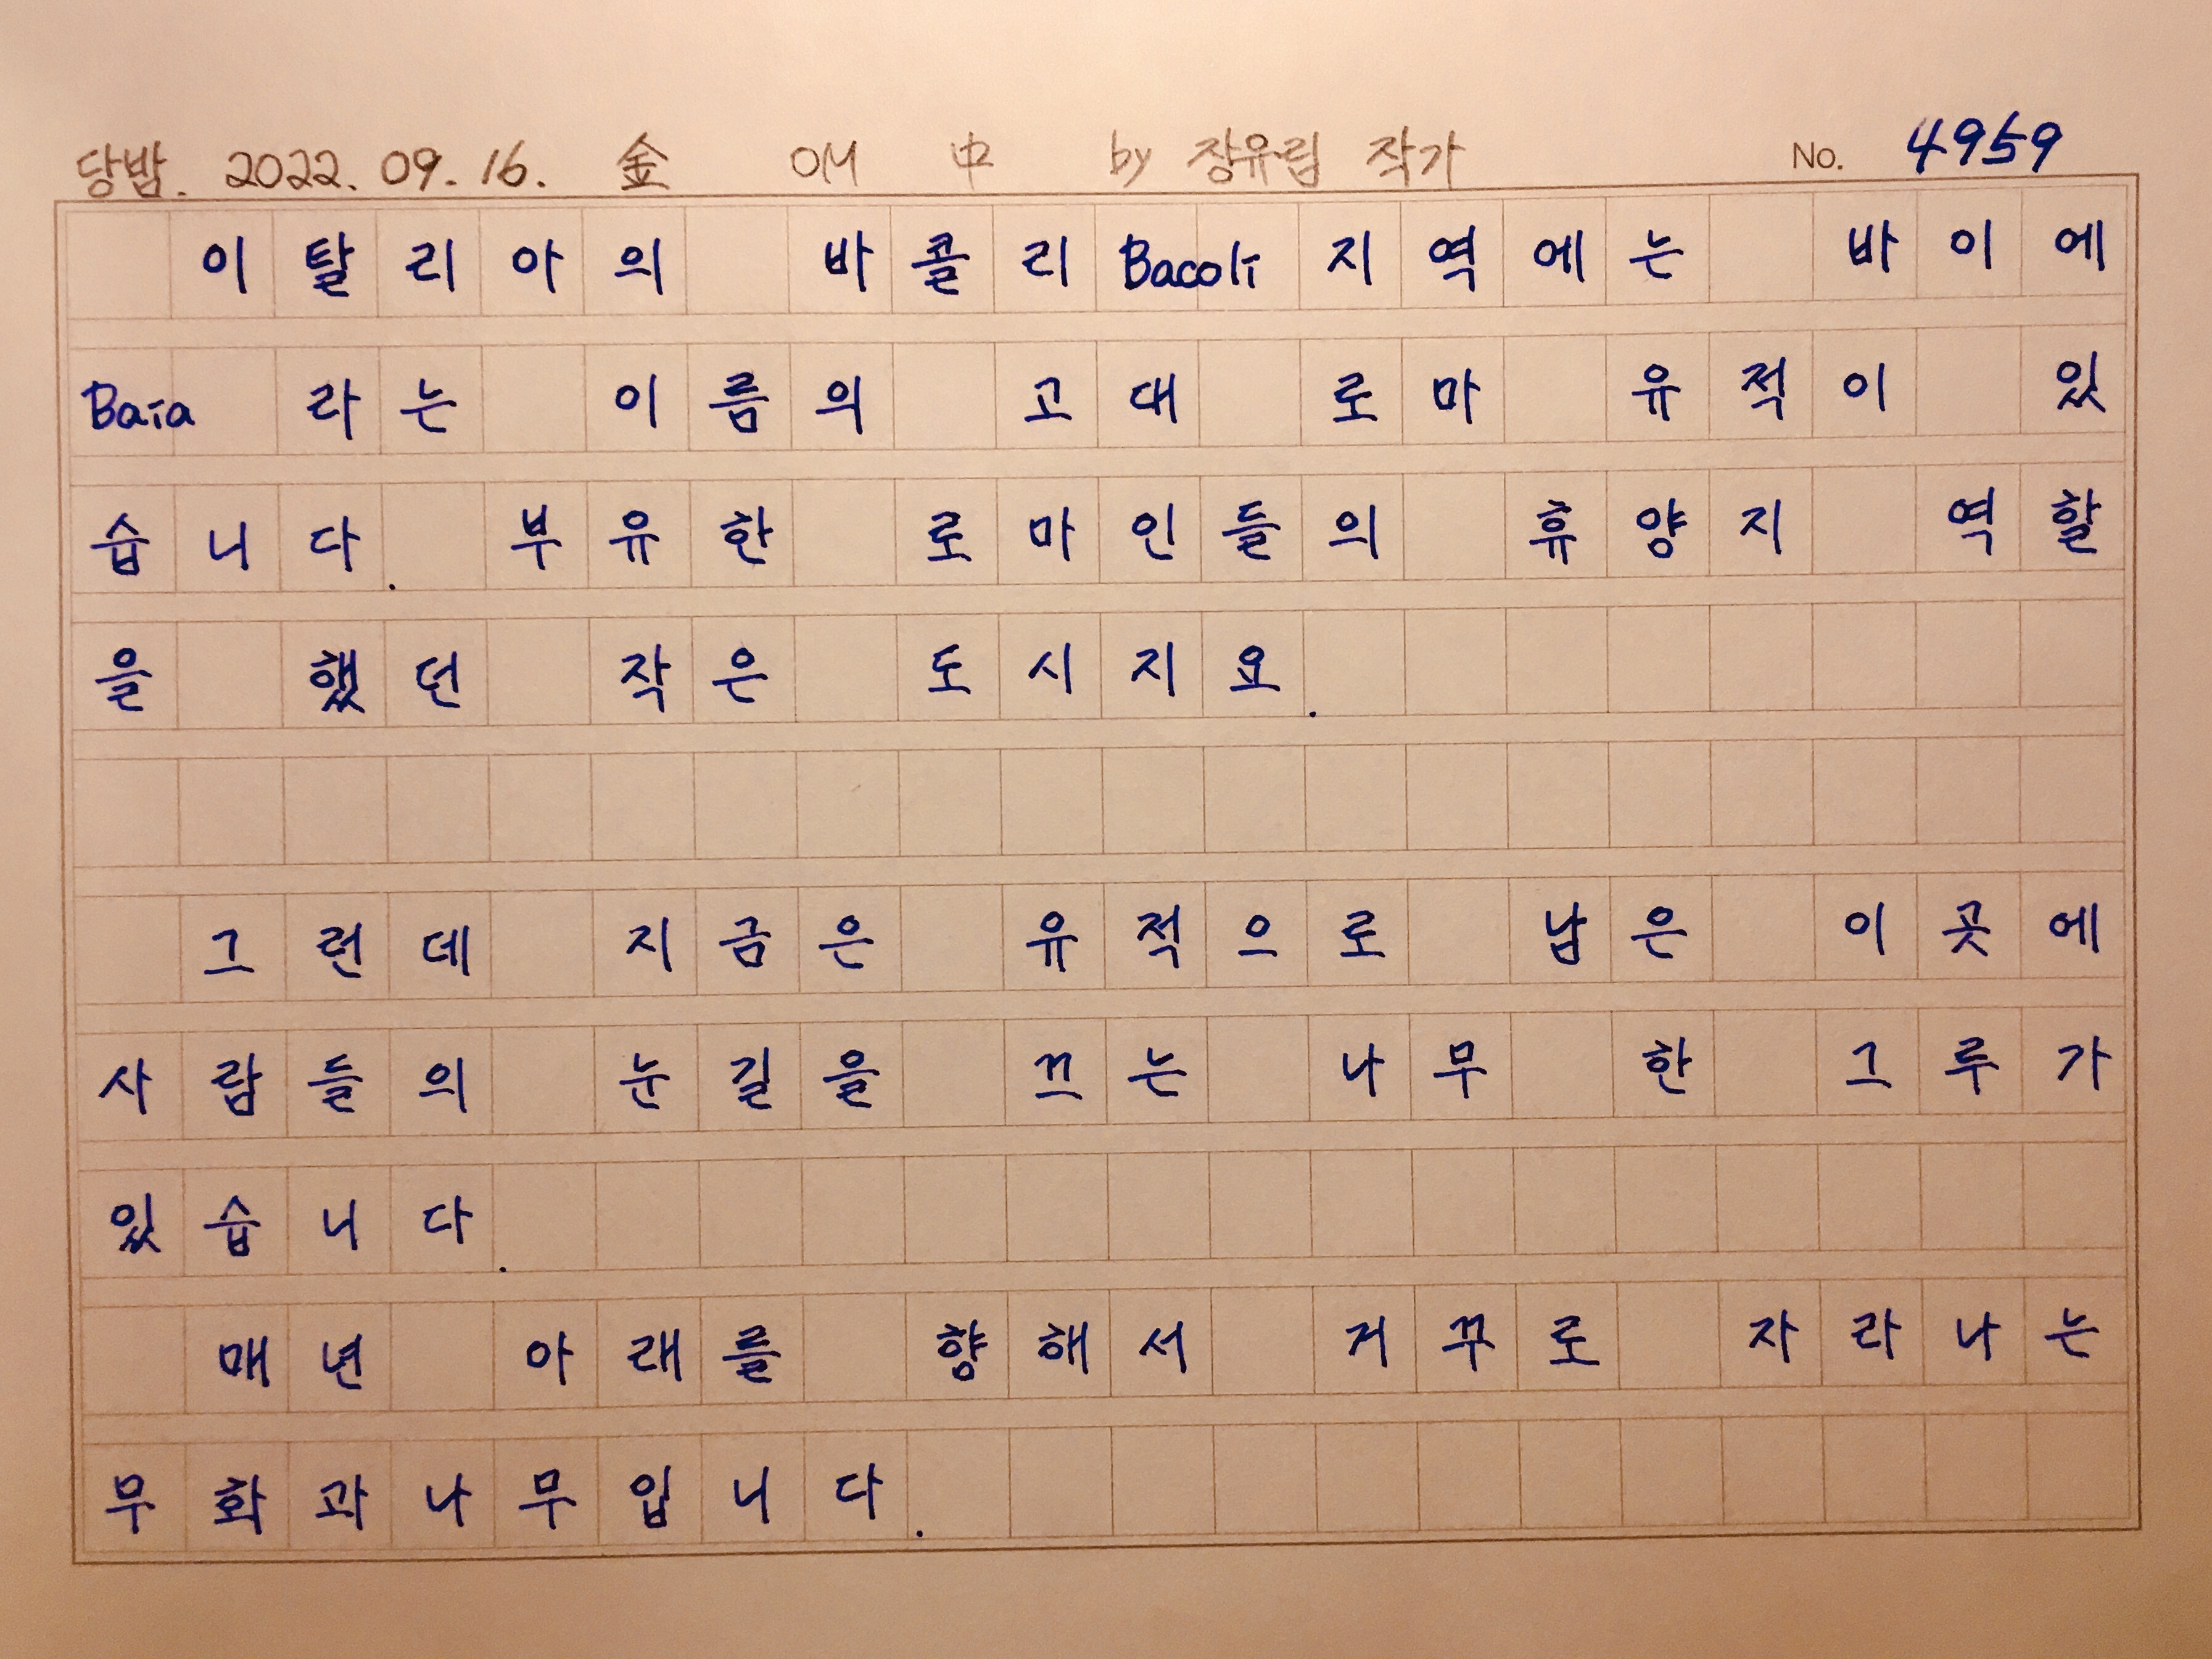 당밤. 2022. 09. 16. 金 OM 中 by 장유림 작가 No. 4959
이탈리아의 바콜리Bacoli지역에는 바이에
Baia라는 이름의 고대 로마 유적이 있
습니다. 부유한 로마인들의 휴양지 역할
을 했던 작은 도시지요.
그런데 지금은 유적으로 남은 이곳에
사람들의 눈길을 끄는 나무 한 그루가
있습니다.
매년 아래를 향해서 거꾸로 자라나는
무화과나무입니다.